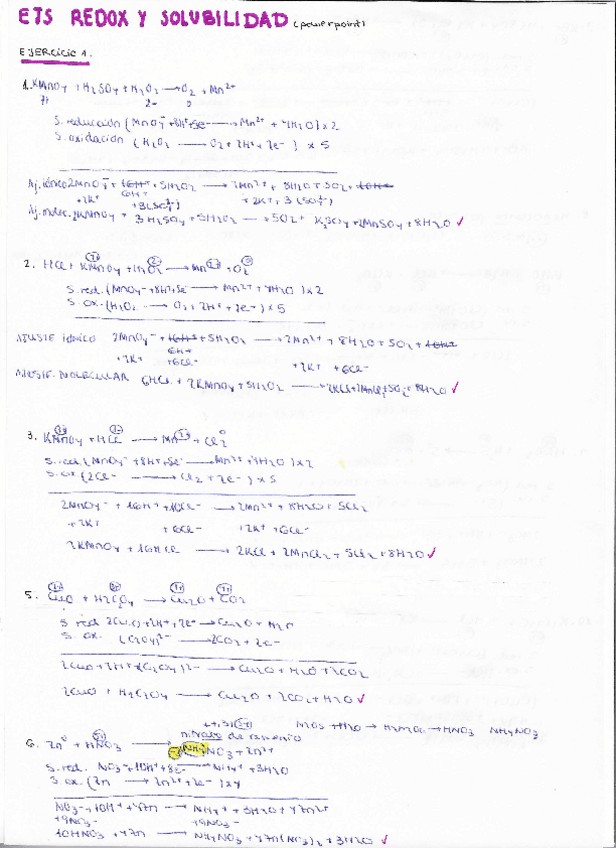 ETS REDOX Y SOLUBILIDAD (powerpoint)
EJERCICIO 1.
1. KMnO4 + H2SO4 + H2O2 → O2 + Mn2+
7+ 2-
S. reducción (MnO4- + 8H+ + 5e- → Mn2+ + 4H2O) x 2
S. oxidación (H2O2 → O2 + 2H+ + 2e-) x 5
Aj. iónico 2MnO4- + 16H+ + 5H2O2 → 2Mn2+ + 8H2O + 5O2 + 10H+
+2K+ 6H+ +2K+, 3(SO4 2-)
+3(SO4 2-)
Aj. molec. 2KMnO4 + 3H2SO4 + 5H2O2 → 5O2 + K2SO4 + 2MnSO4 + 8H2O ✓
2. HCl + KMnO4 + H2O2 → Mn2+ + O2
S. red. (MnO4- + 8H+ + 5e- → Mn2+ + 4H2O) x 2
S. ox. (H2O2 → O2 + 2H+ + 2e-) x 5
AJUSTE IÓNICO 2MnO4- + 16H+ + 5H2O2 → 2Mn2+ + 8H2O + 5O2 + 10H+
+2K+ 6H+ +2K+ +6Cl-
+6Cl-
AJUSTE MOLECULAR 6HCl + 2KMnO4 + 5H2O2 → 2KCl + 2MnCl2 + 5O2 + 8H2O ✓
3. KMnO4 + HCl → Mn2+ + Cl2
S. red. (MnO4- + 8H+ + 5e- → Mn2+ + 4H2O) x 2
S. ox. (2Cl- → Cl2 + 2e-) x 5
2MnO4- + 16H+ + 10Cl- → 2Mn2+ + 8H2O + 5Cl2
+2K+ +6Cl- +2K+ +6Cl-
2KMnO4 + 16HCl → 2KCl + 2MnCl2 + 5Cl2 + 8H2O ✓
5. CuO + H2C2O4 → Cu2O + CO2
S. red. 2CuO + 2H+ + 2e- → Cu2O + H2O
S. ox. (C2O4)2- → 2CO2 + 2e-
2CuO + 2H+ + (C2O4)2- → Cu2O + H2O + 2CO2
2CuO + H2C2O4 → Cu2O + 2CO2 + H2O ✓
nitrato de amonio
6. Zn0 + HNO3 → NH4NO3 + Zn2+
S. red. NO3- + 10H+ + 8e- → NH4+ + 3H2O
S. ox. (Zn → Zn2+ + 2e-) x 4
NO3- + 10H+ + 4Zn → NH4+ + 3H2O + 4Zn2+
+9NO3- +9NO3-
10HNO3 + 4Zn → NH4NO3 + 4Zn(NO3)2 + 3H2O ✓